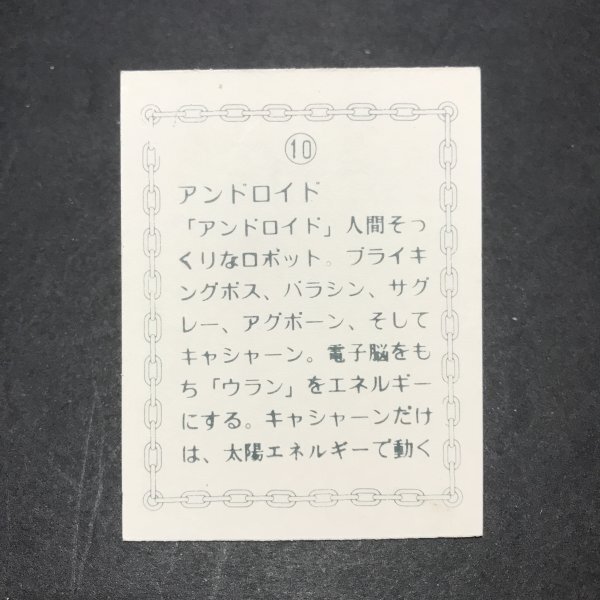 10
アンドロイド
「アンドロイド」人間そっ
くりなロボット。ブライキ
ングボス、バラシン、サグ
レー、アグボーン、そして
キャシャーン。電子脳をも
ち「ウラン」をエネルギー
にする。キャシャーンだけ
は、太陽エネルギーで動く